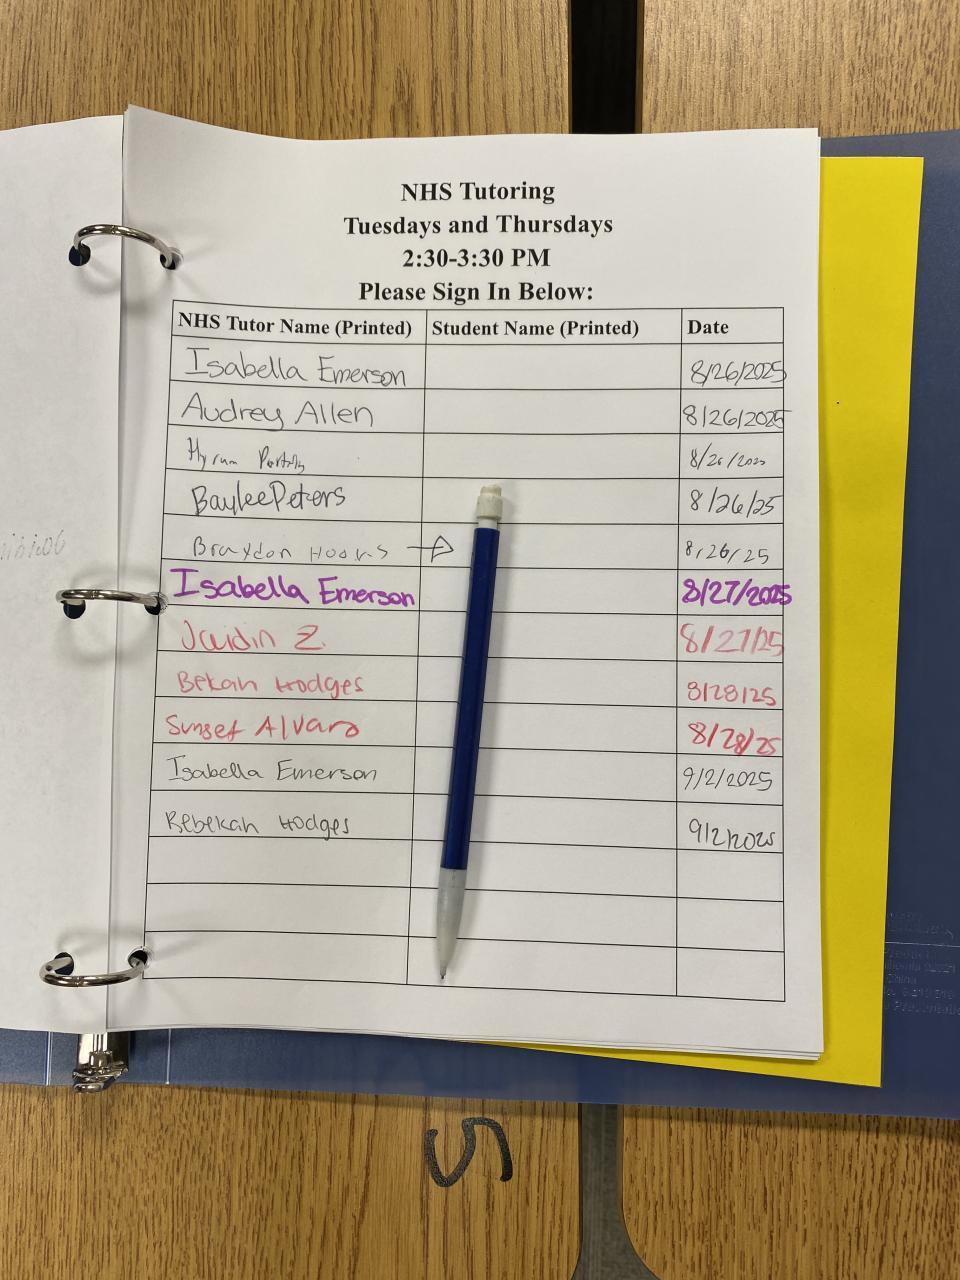 NHS Tutoring
Tuesdays and Thursdays
2:30-3:30 PM
Please Sign In Below:
NHS Tutor Name (Printed) Student Name (Printed) Date
Isabella Emerson 8/26/2025
Audrey Allen 8/26/2025
Hyrum
Baylee Peters 8/26/25
Braydon 8/26/25
Isabella Emerson 8/27/2025
Jaidin Z. 8/27/25
Bekah Hodges 8/28/25
Sunset Alvaro 8/28/25
Isabella Emerson 9/2/2025
Rebekah Hodges 9/2/2025
5